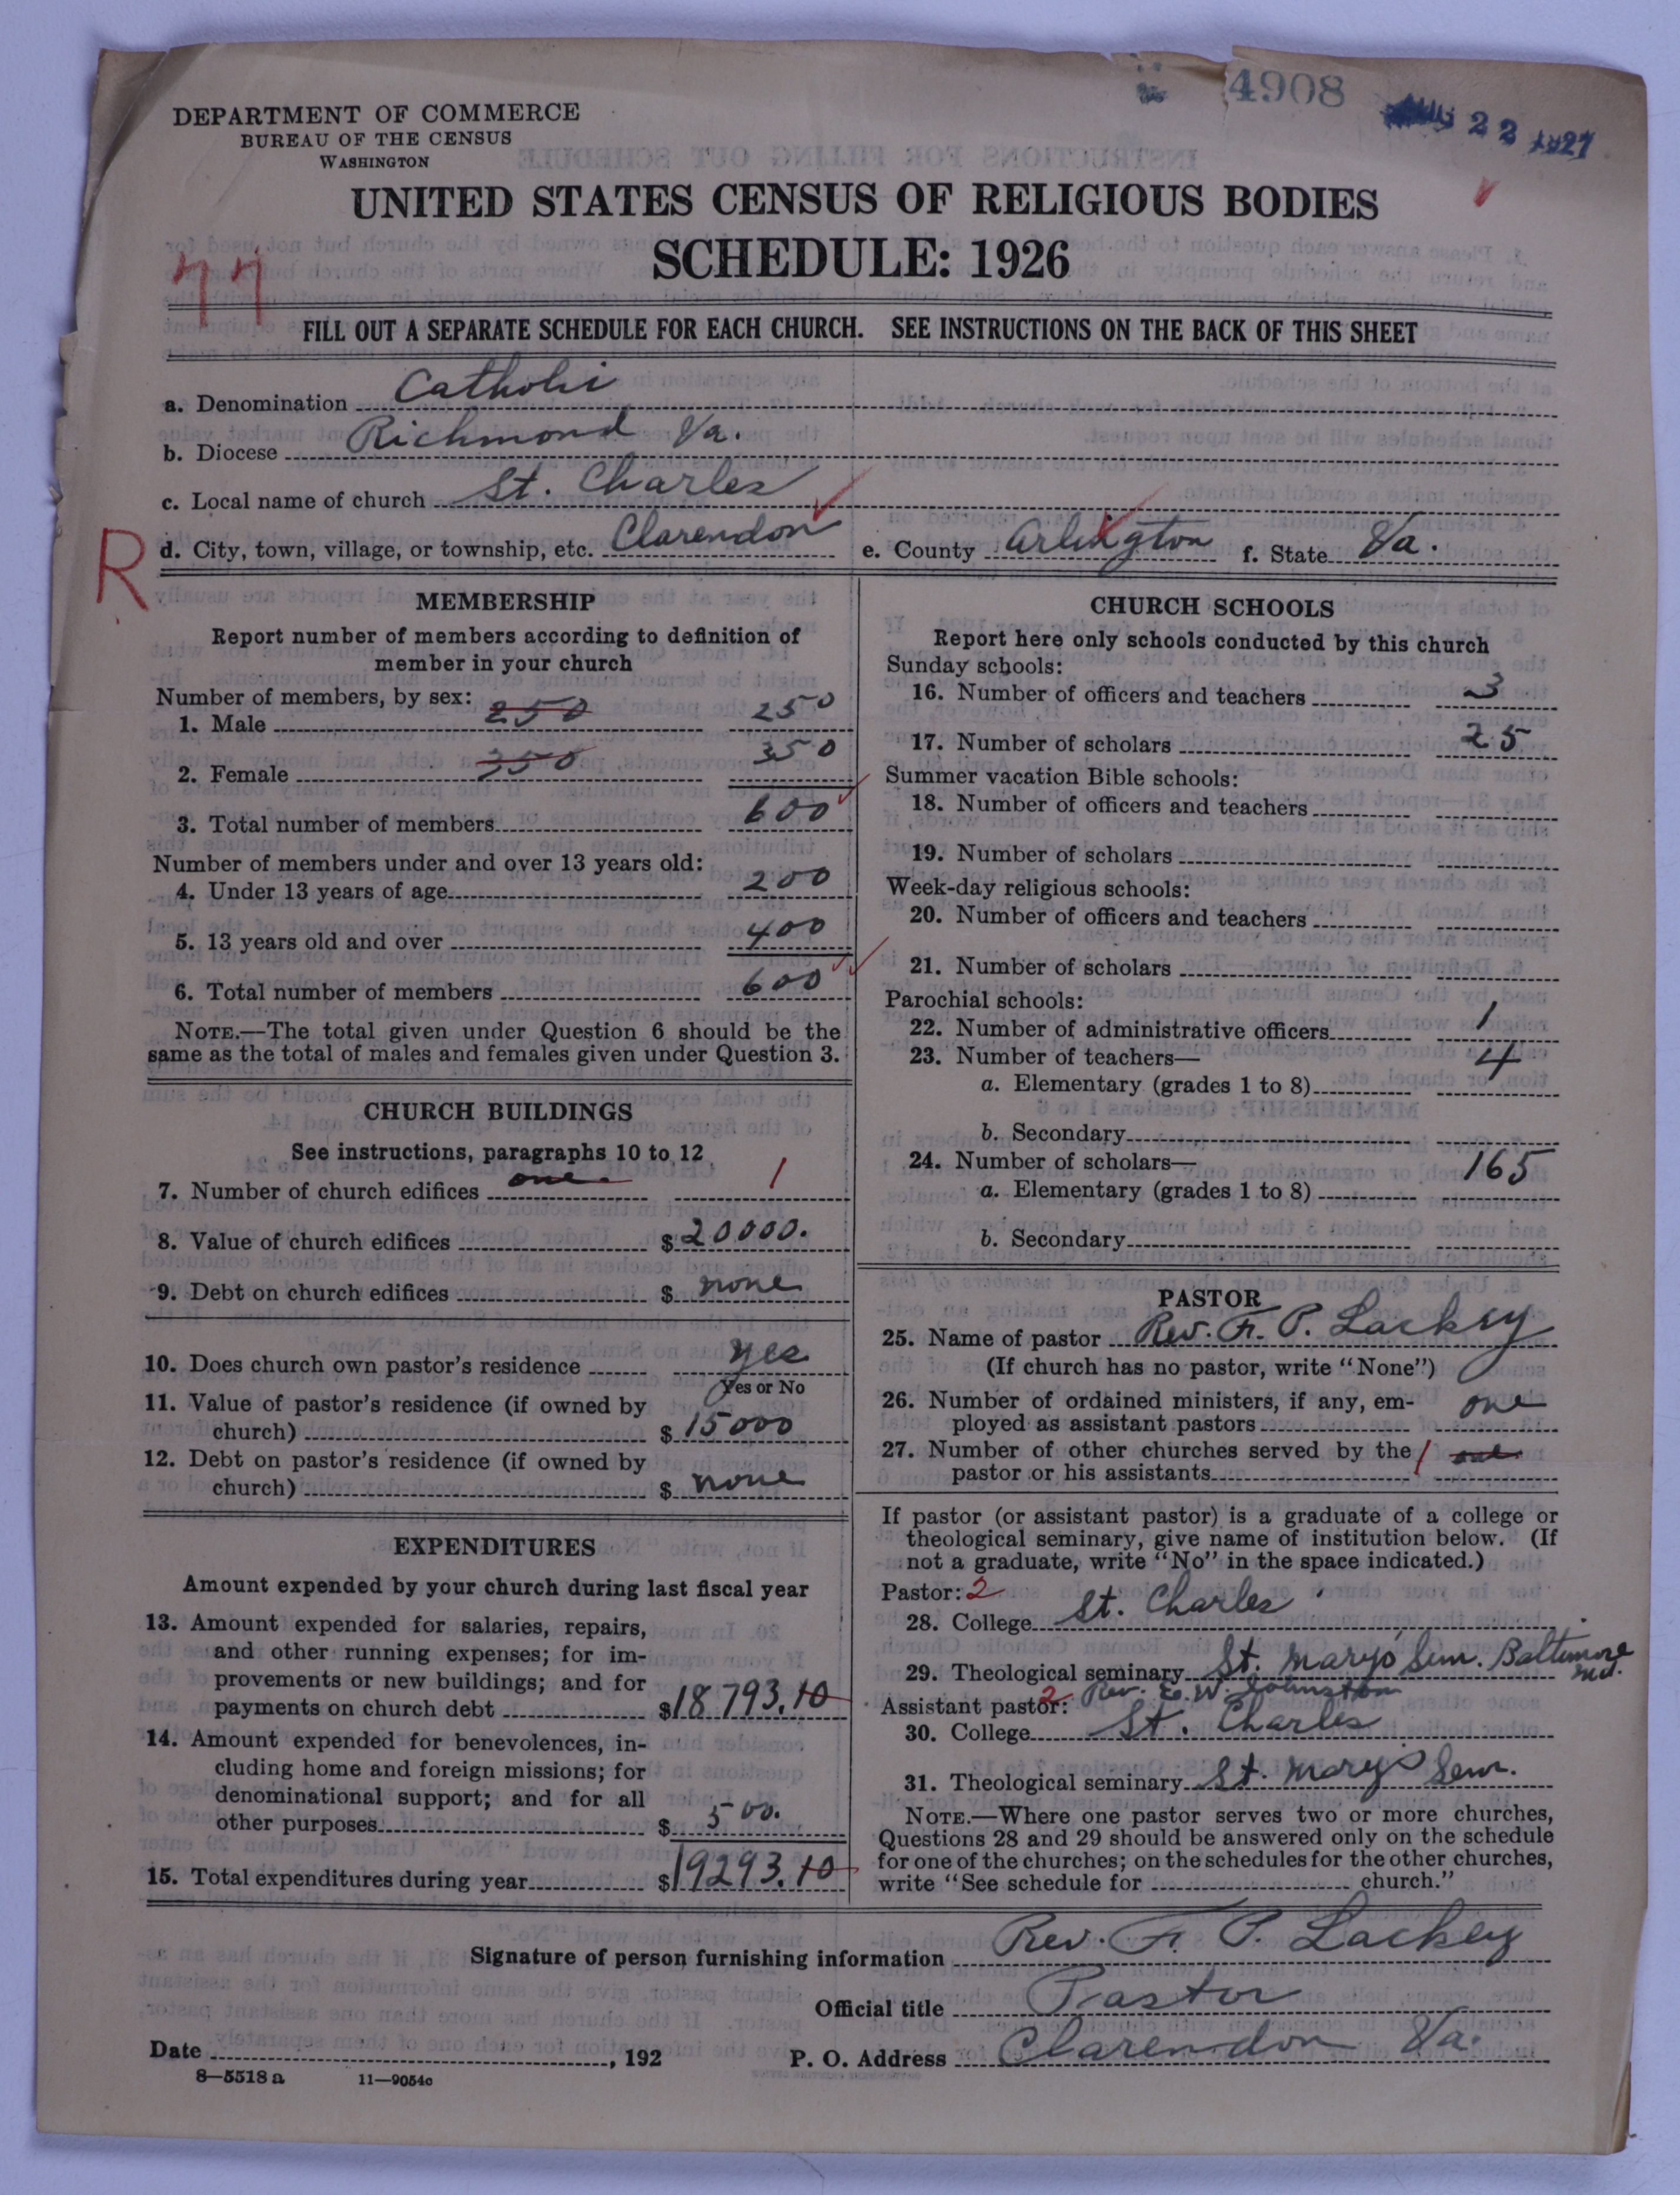 4908
AUG 22 1927
DEPARTMENT OF COMMERCE
BUREAU OF THE CENSUS
WASHINGTON
UNITED STATES CENSUS OF RELIGIOUS BODIES
SCHEDULE: 1926
77
FILL OUT A SEPARATE SCHEDULE FOR EACH CHURCH. SEE INSTRUCTIONS ON THE BACK OF THIS SHEET
a. Denomination Catholic
b. Diocese Richmond Va.
c. Local name of church St. Charles
R
d. City, town, village, or township, etc. Clarendon e. County Arlington f. State Va.
MEMBERSHIP
Report number of members according to definition of
member in your church
Number of members, by sex:
1. Male 250 250
2. Female 350 350
3. Total number of members 600
Number of members under and over 13 years old:
4. Under 13 years of age 200
5. 13 years old and over 400
6. Total number of members 600
NOTE.—The total given under Question 6 should be the
same as the total of males and females given under Question 3.
CHURCH BUILDINGS
See instructions, paragraphs 10 to 12
7. Number of church edifices one. 1
8. Value of church edifices $ 20000.
9. Debt on church edifices $ none
10. Does church own pastor's residence yes
Yes or No
11. Value of pastor's residence (if owned by
church) $ 15000
12. Debt on pastor's residence (if owned by
church) $ none
EXPENDITURES
Amount expended by your church during last fiscal year
13. Amount expended for salaries, repairs,
and other running expenses; for im-
provements or new buildings; and for
payments on church debt $ 18793.10
14. Amount expended for benevolences, in-
cluding home and foreign missions; for
denominational support; and for all
other purposes $ 500.
15. Total expenditures during year $ 19293.10
CHURCH SCHOOLS
Report here only schools conducted by this church
Sunday schools:
16. Number of officers and teachers 3
17. Number of scholars 25
Summer vacation Bible schools:
18. Number of officers and teachers
19. Number of scholars
Week-day religious schools:
20. Number of officers and teachers
21. Number of scholars
Parochial schools:
22. Number of administrative officers 1
23. Number of teachers— 4
a. Elementary (grades 1 to 8)
b. Secondary
24. Number of scholars— 165
a. Elementary (grades 1 to 8)
b. Secondary
PASTOR
25. Name of pastor Rev. Fr. P. Lackey
(If church has no pastor, write "None")
26. Number of ordained ministers, if any, em-
ployed as assistant pastors one
27. Number of other churches served by the 1 one
pastor or his assistants
If pastor (or assistant pastor) is a graduate of a college or
theological seminary, give name of institution below. (If
not a graduate, write "No" in the space indicated.)
Pastor: 2
28. College St. Charles
29. Theological seminary St. Mary's Sem. Baltimore Md.
Assistant pastor: 2 Rev. E. W. Johnston
30. College St. Charles
31. Theological seminary St. Mary's Sem.
NOTE.—Where one pastor serves two or more churches,
Questions 28 and 29 should be answered only on the schedule
for one of the churches; on the schedules for the other churches,
write "See schedule for church."
Signature of person furnishing information Rev. Fr. P. Lackey
Official title Pastor
Date , 192 P. O. Address Clarendon Va.
8—5518 a 11—9054c